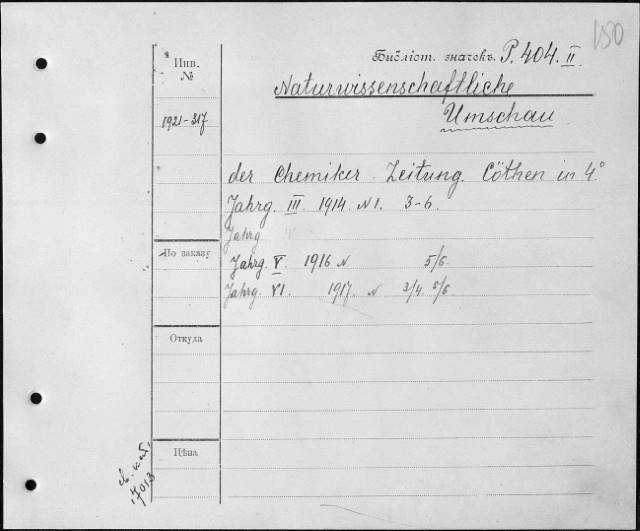 150
Инв.
№
Библіот. значекъ. P. 404. II
Naturwissenschaftliche
Umschau
1921-317
der Chemiker-Zeitung. Cöthen in 4°
Jahrg. III. 1914. N 1. 3-6.
Jahrg
По заказу
Jahrg. V. 1916 N 5/6
Jahrg. VI. 1917. N 3/4 5/6.
Откуда
Цѣна